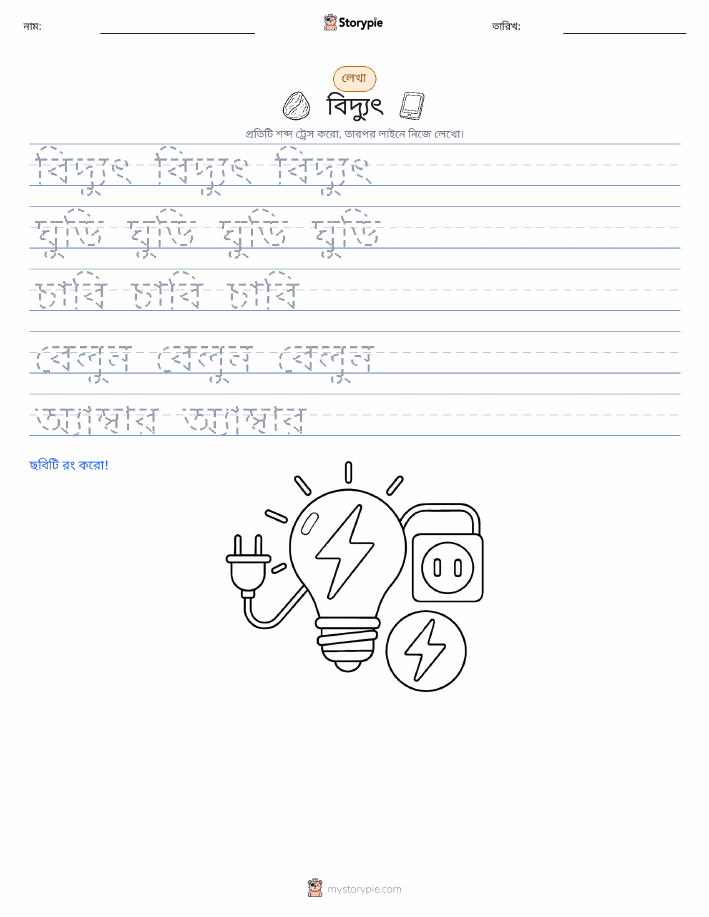 নাম:
Storypie
তারিখ:
লেখা
বিদ্যুৎ
প্রতিটি শব্দ ট্রেস করো, তারপর লাইনে নিজে লেখো।
বিদ্যুৎ বিদ্যুৎ বিদ্যুৎ
ঘুড়ি ঘুড়ি ঘুড়ি ঘুড়ি
চাবি চাবি চাবি
বেলুন বেলুন বেলুন
অ্যাম্বার অ্যাম্বার
ছবিটি রং করো!
mystorypie.com